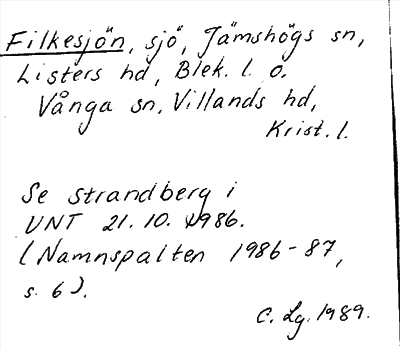 Filkesjön, sjö, Jämshögs sn,
Listers hd, Blek. l. o.
Vånga sn, Villands hd,
Krist. l.
Se Strandberg i
UNT 21. 10. 1986.
(Namnspalten 1986-87,
s. 6).
C. Lg. 1989.